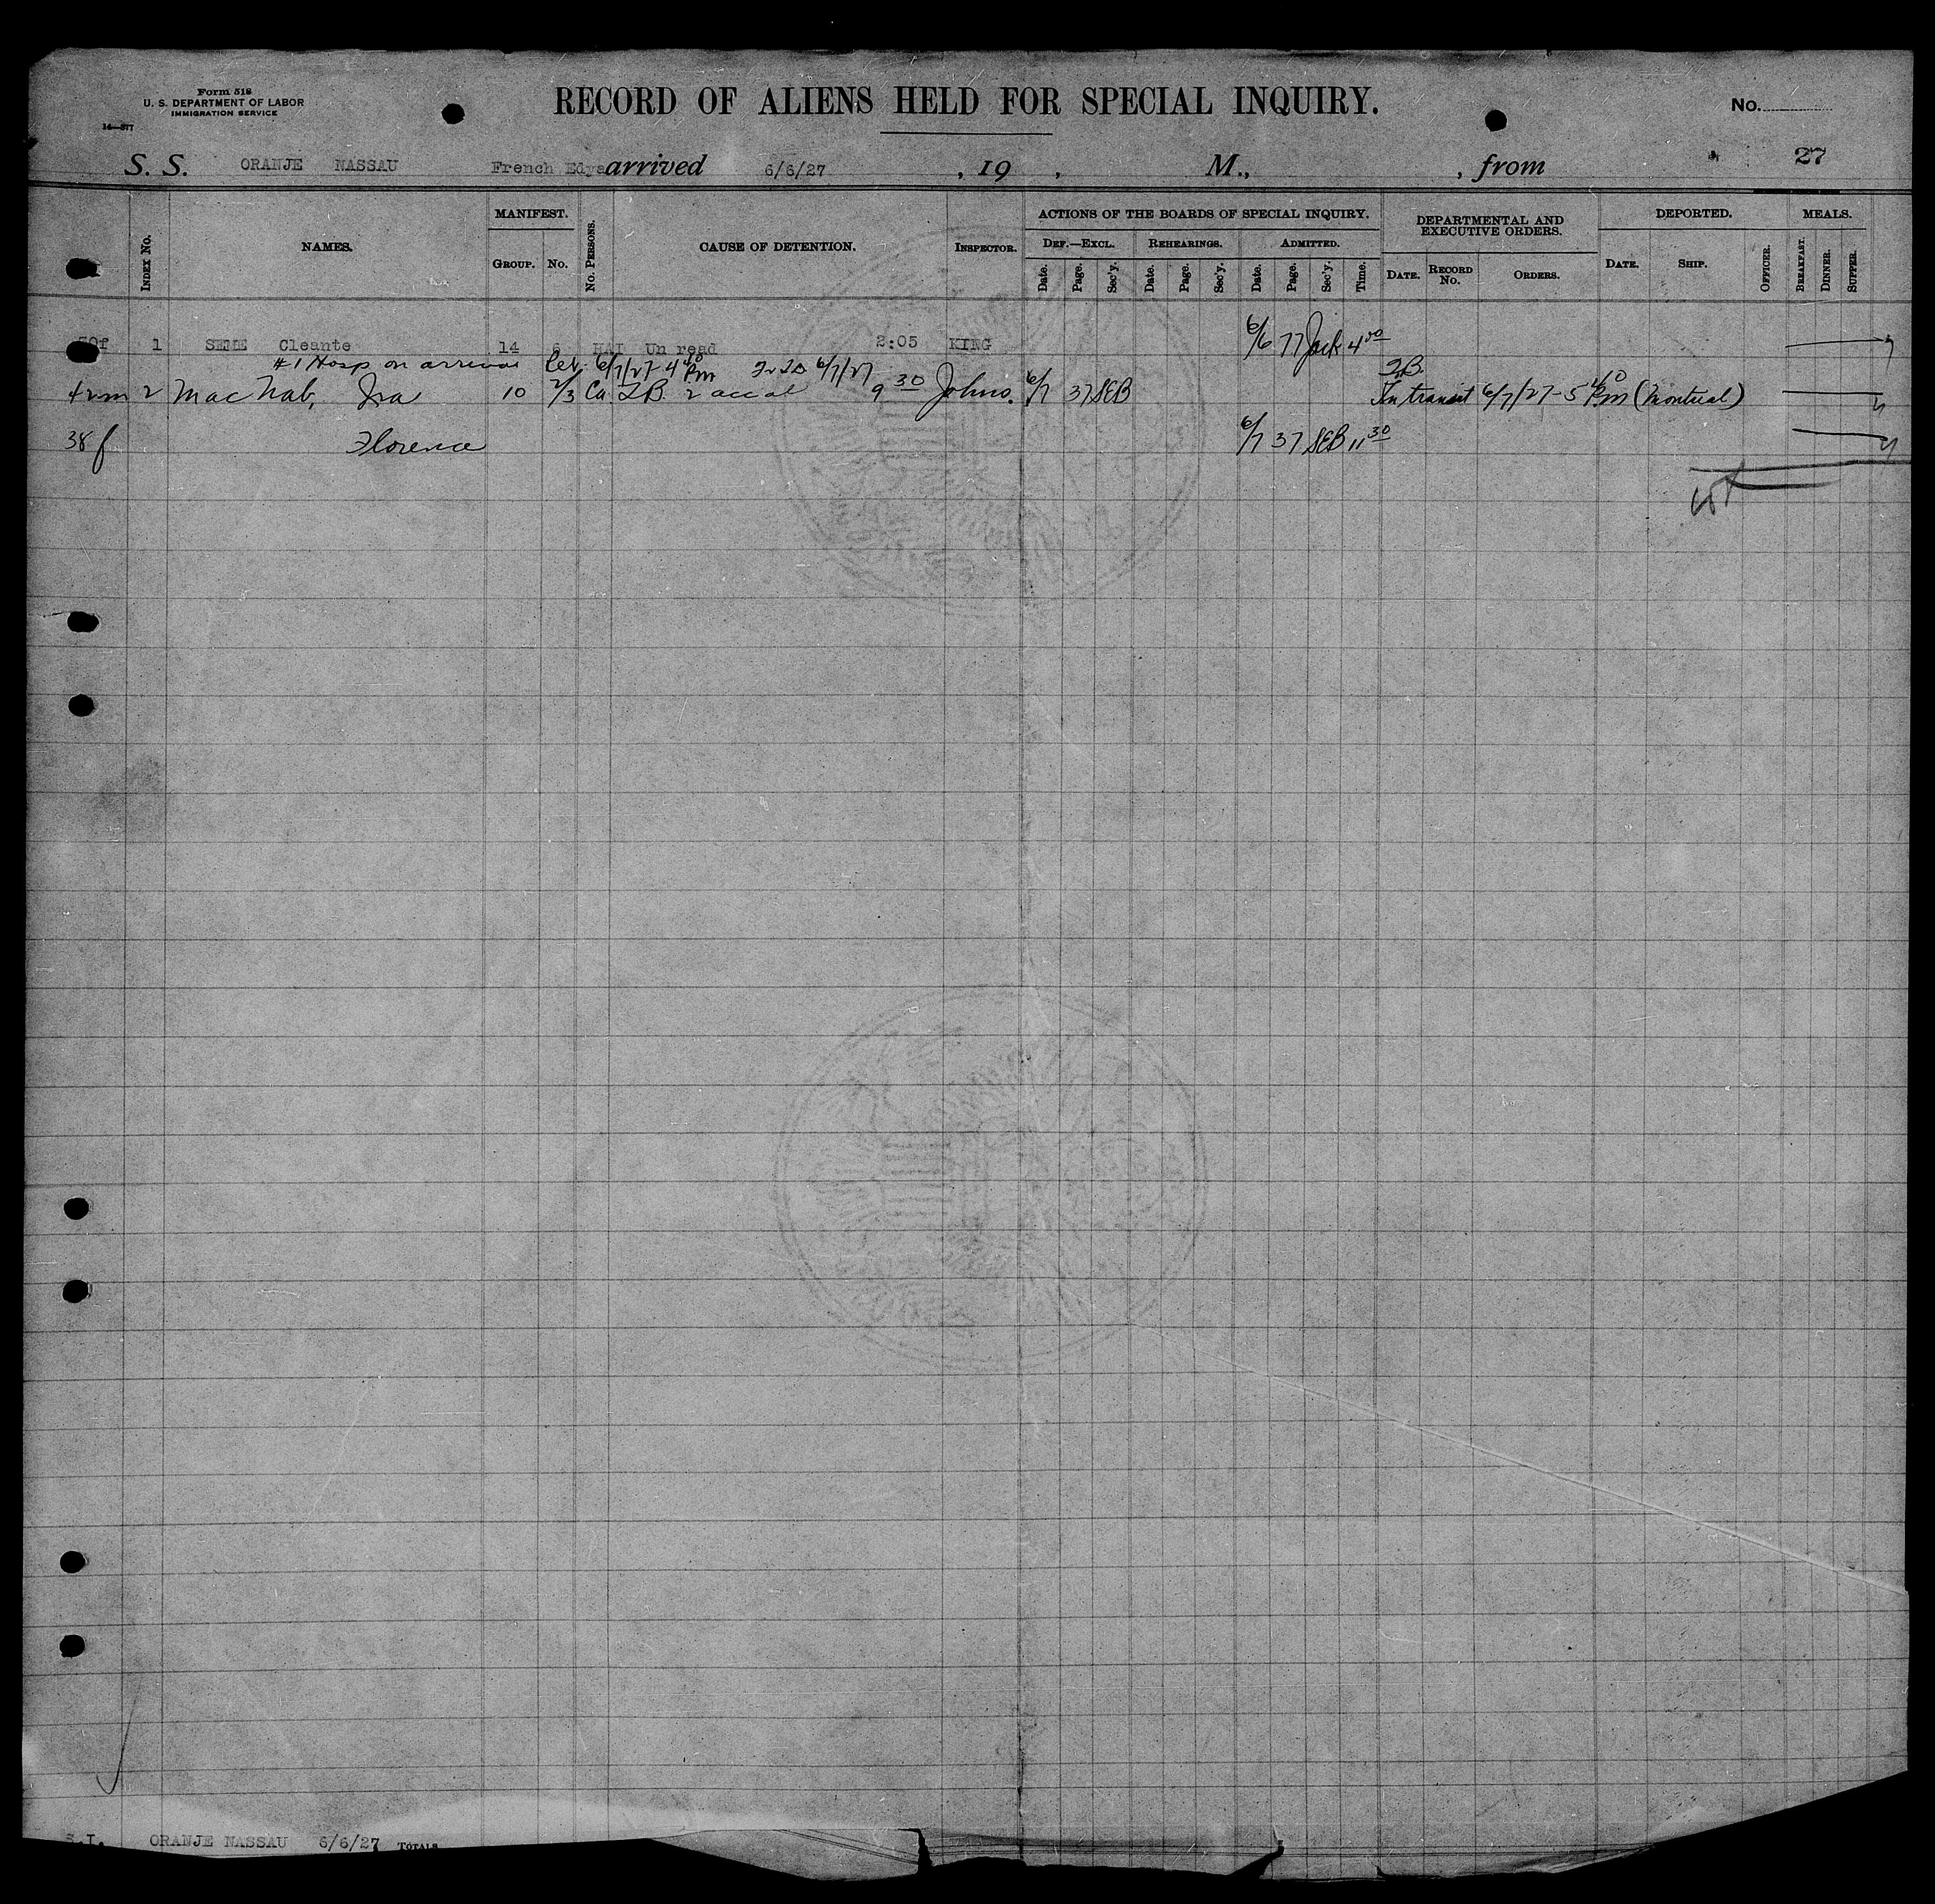 Form 518
U. S. DEPARTMENT OF LABOR
IMMIGRATION SERVICE
14—577
RECORD OF ALIENS HELD FOR SPECIAL INQUIRY.
No.
S. S. ORANJE NASSAU French Edya arrived 6/6/27 , 19 , M., , from 27
INDEX NO.
NAMES.
MANIFEST.
GROUP. NO.
NO. PERSONS.
CAUSE OF DETENTION.
INSPECTOR.
ACTIONS OF THE BOARDS OF SPECIAL INQUIRY.
DEF.—EXCL. REHEARINGS. ADMITTED.
Date. Page. Sec'y. Date. Page. Sec'y. Date. Page. Sec'y. Time.
DEPARTMENTAL AND EXECUTIVE ORDERS.
DATE. RECORD NO. ORDERS.
DEPORTED.
DATE. SHIP. OFFICER.
MEALS.
BREAKFAST. DINNER. SUPPER.
1 SEME Cleante 14 6 HAI Un read 2:05 KING 6/6 77 Jack 4 00
#1 Hosp on arrival 6/7/27 4 40 Pm 6/7/27
2 Mac Nab, Ira 10 2/3 Ca 9 30 Johns. 6/7 37 SEB In transit 6/7/27-5 40 Pm (Montreal)
38 f Florence 6/7 37 SEB 11 30
S.I. ORANJE NASSAU 6/6/27 TOTALS